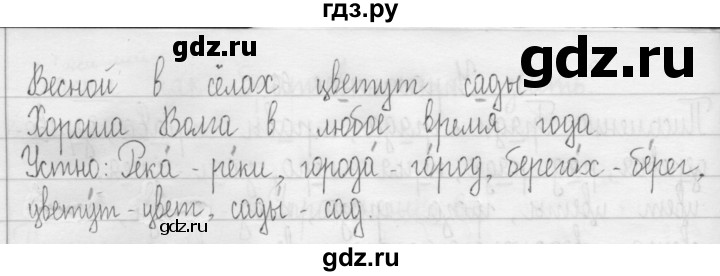 гдз.ру
гдз.ру
гдз.ру
Весной в сёлах цветут сады.
Хороша Волга в любое время года
Устно: Река́ - ре́ки, города́ - го́род, берега́х - бе́рег,
цвету́т - цвет, сады́ - сад.
гдз.ру
гдз.ру